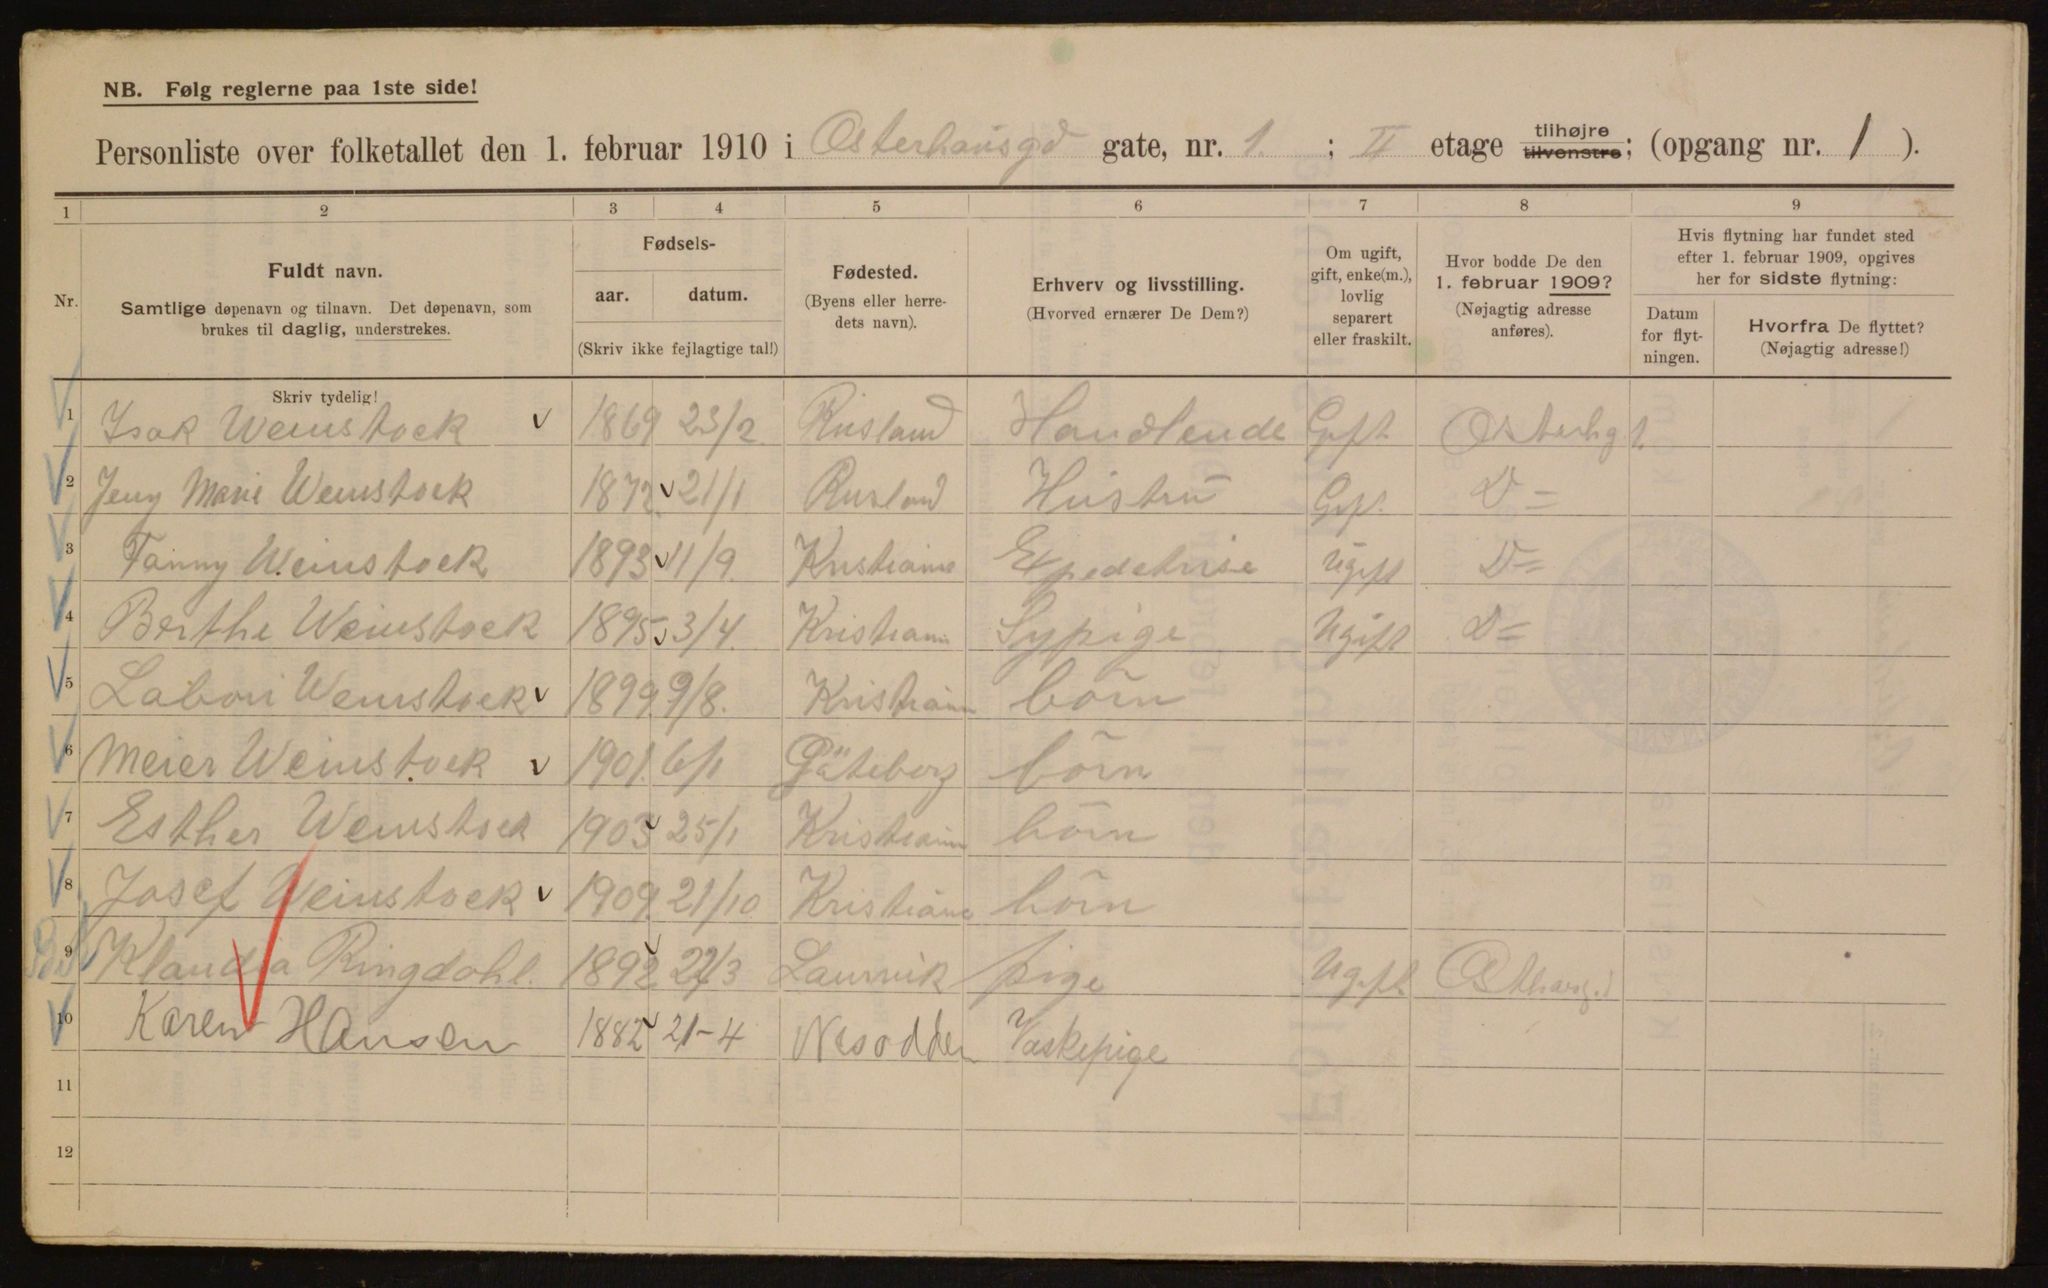 NB. Følg reglerne paa 1ste side!
Personliste over folketallet den 1. februar 1910 i Osterhausgd gate, nr. 1. ; II etage tilhøjre tilvenstre; (opgang nr. 1 ).
1 2 3 4 5 6 7 8 9
Nr.
Fuldt navn.
Samtlige døpenavn og tilnavn. Det døpenavn, som
brukes til daglig, understrekes.
Skriv tydelig!
Fødsels-
aar. datum.
(Skriv ikke fejlagtige tal!)
Fødested.
(Byens eller herre-
dets navn).
Erhverv og livsstilling.
(Hvorved ernærer De Dem?)
Om ugift,
gift, enke(m.),
lovlig
separert
eller fraskilt.
Hvor bodde De den
1. februar 1909?
(Nøjagtig adresse
anføres).
Hvis flytning har fundet sted
efter 1. februar 1909, opgives
her for sidste flytning:
Datum
for flyt-
ningen.
Hvorfra De flyttet?
(Nøjagtig adresse!)
1 Isak Weinstock 1869 23/2 Rusland Handlende Gift Osterhg 1.
2 Jeny Marie Weinstock 1872 21/1 Rusland Hustru Gif. D=
3 Fanny Weinstock 1893 11/9 Kristiania Expedetrise Ugift D=
4 Berthe Weinstock 1895 3/4. Kristiania Sypige Ugift D=
5 Labori Weinstock 1899 9/8. Kristiania børn
6 Meier Weinstock 1901. 6/1 Göteborg børn
7 Esther Weinstock 1903 25/1 Kristiania børn
8 Josef Weinstock 1909 21/10 Kristiania børn
9 Klaudia Ringdahl. 1892 /3 Laurvik pige Ugift
10 Karen Hansen 1882 21-4 Nesodden Vaskepige
11
12